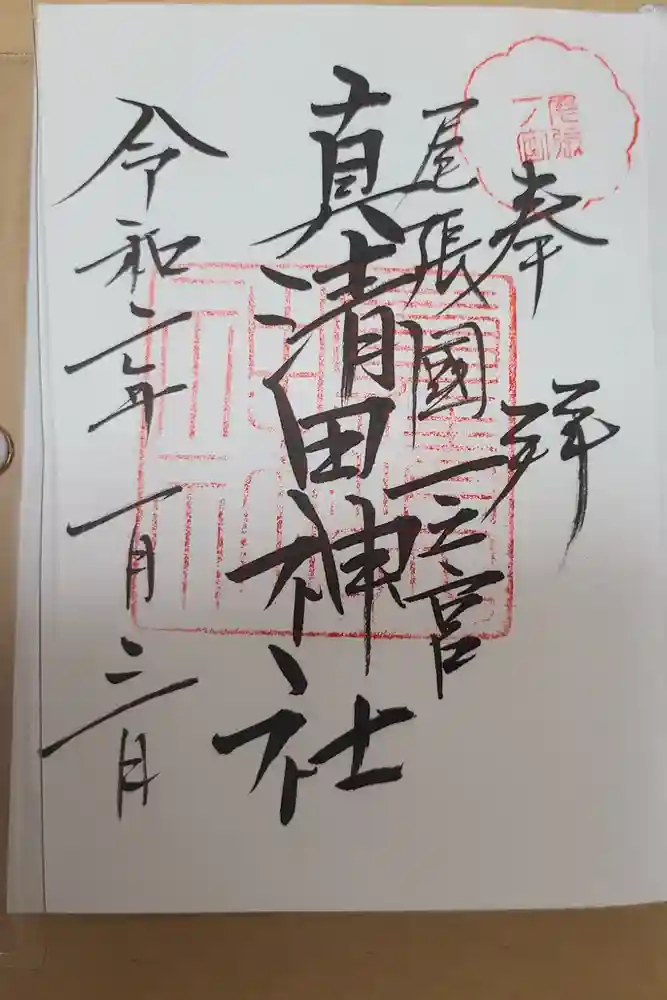 奉拝
尾張一宮
尾張國一之宮
真清田神社
令和二年一月三日